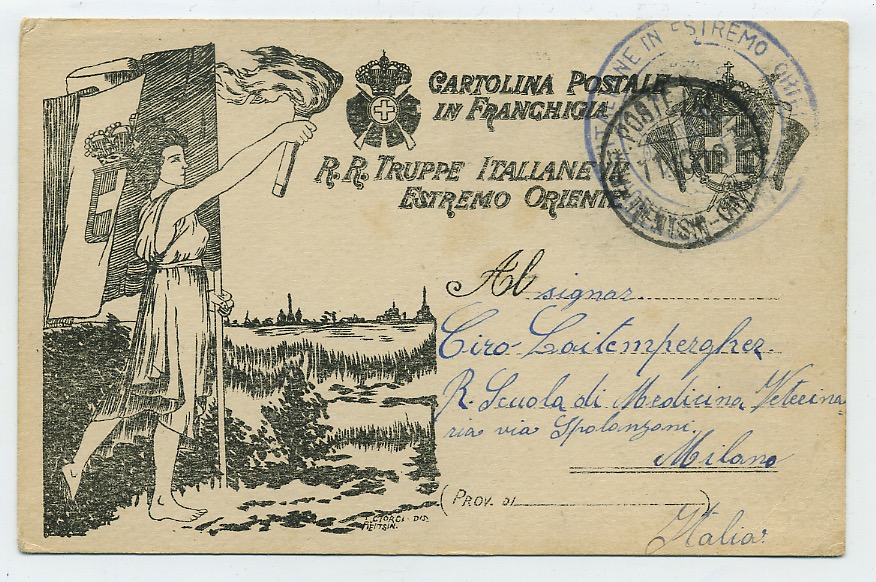 CARTOLINA POSTALE
IN FRANCHIGIA
R.R. TRUPPE ITALIANE IN
ESTREMO ORIENTE
IN ESTREMO
POSTE
TIENTSIN
Al signor
Ciro Laitempergher
R. Scuola di Medicina Veterina
ria via Spolanzani
Milano
(PROV. DI )
Italia
DIS.
TIENTSIN.